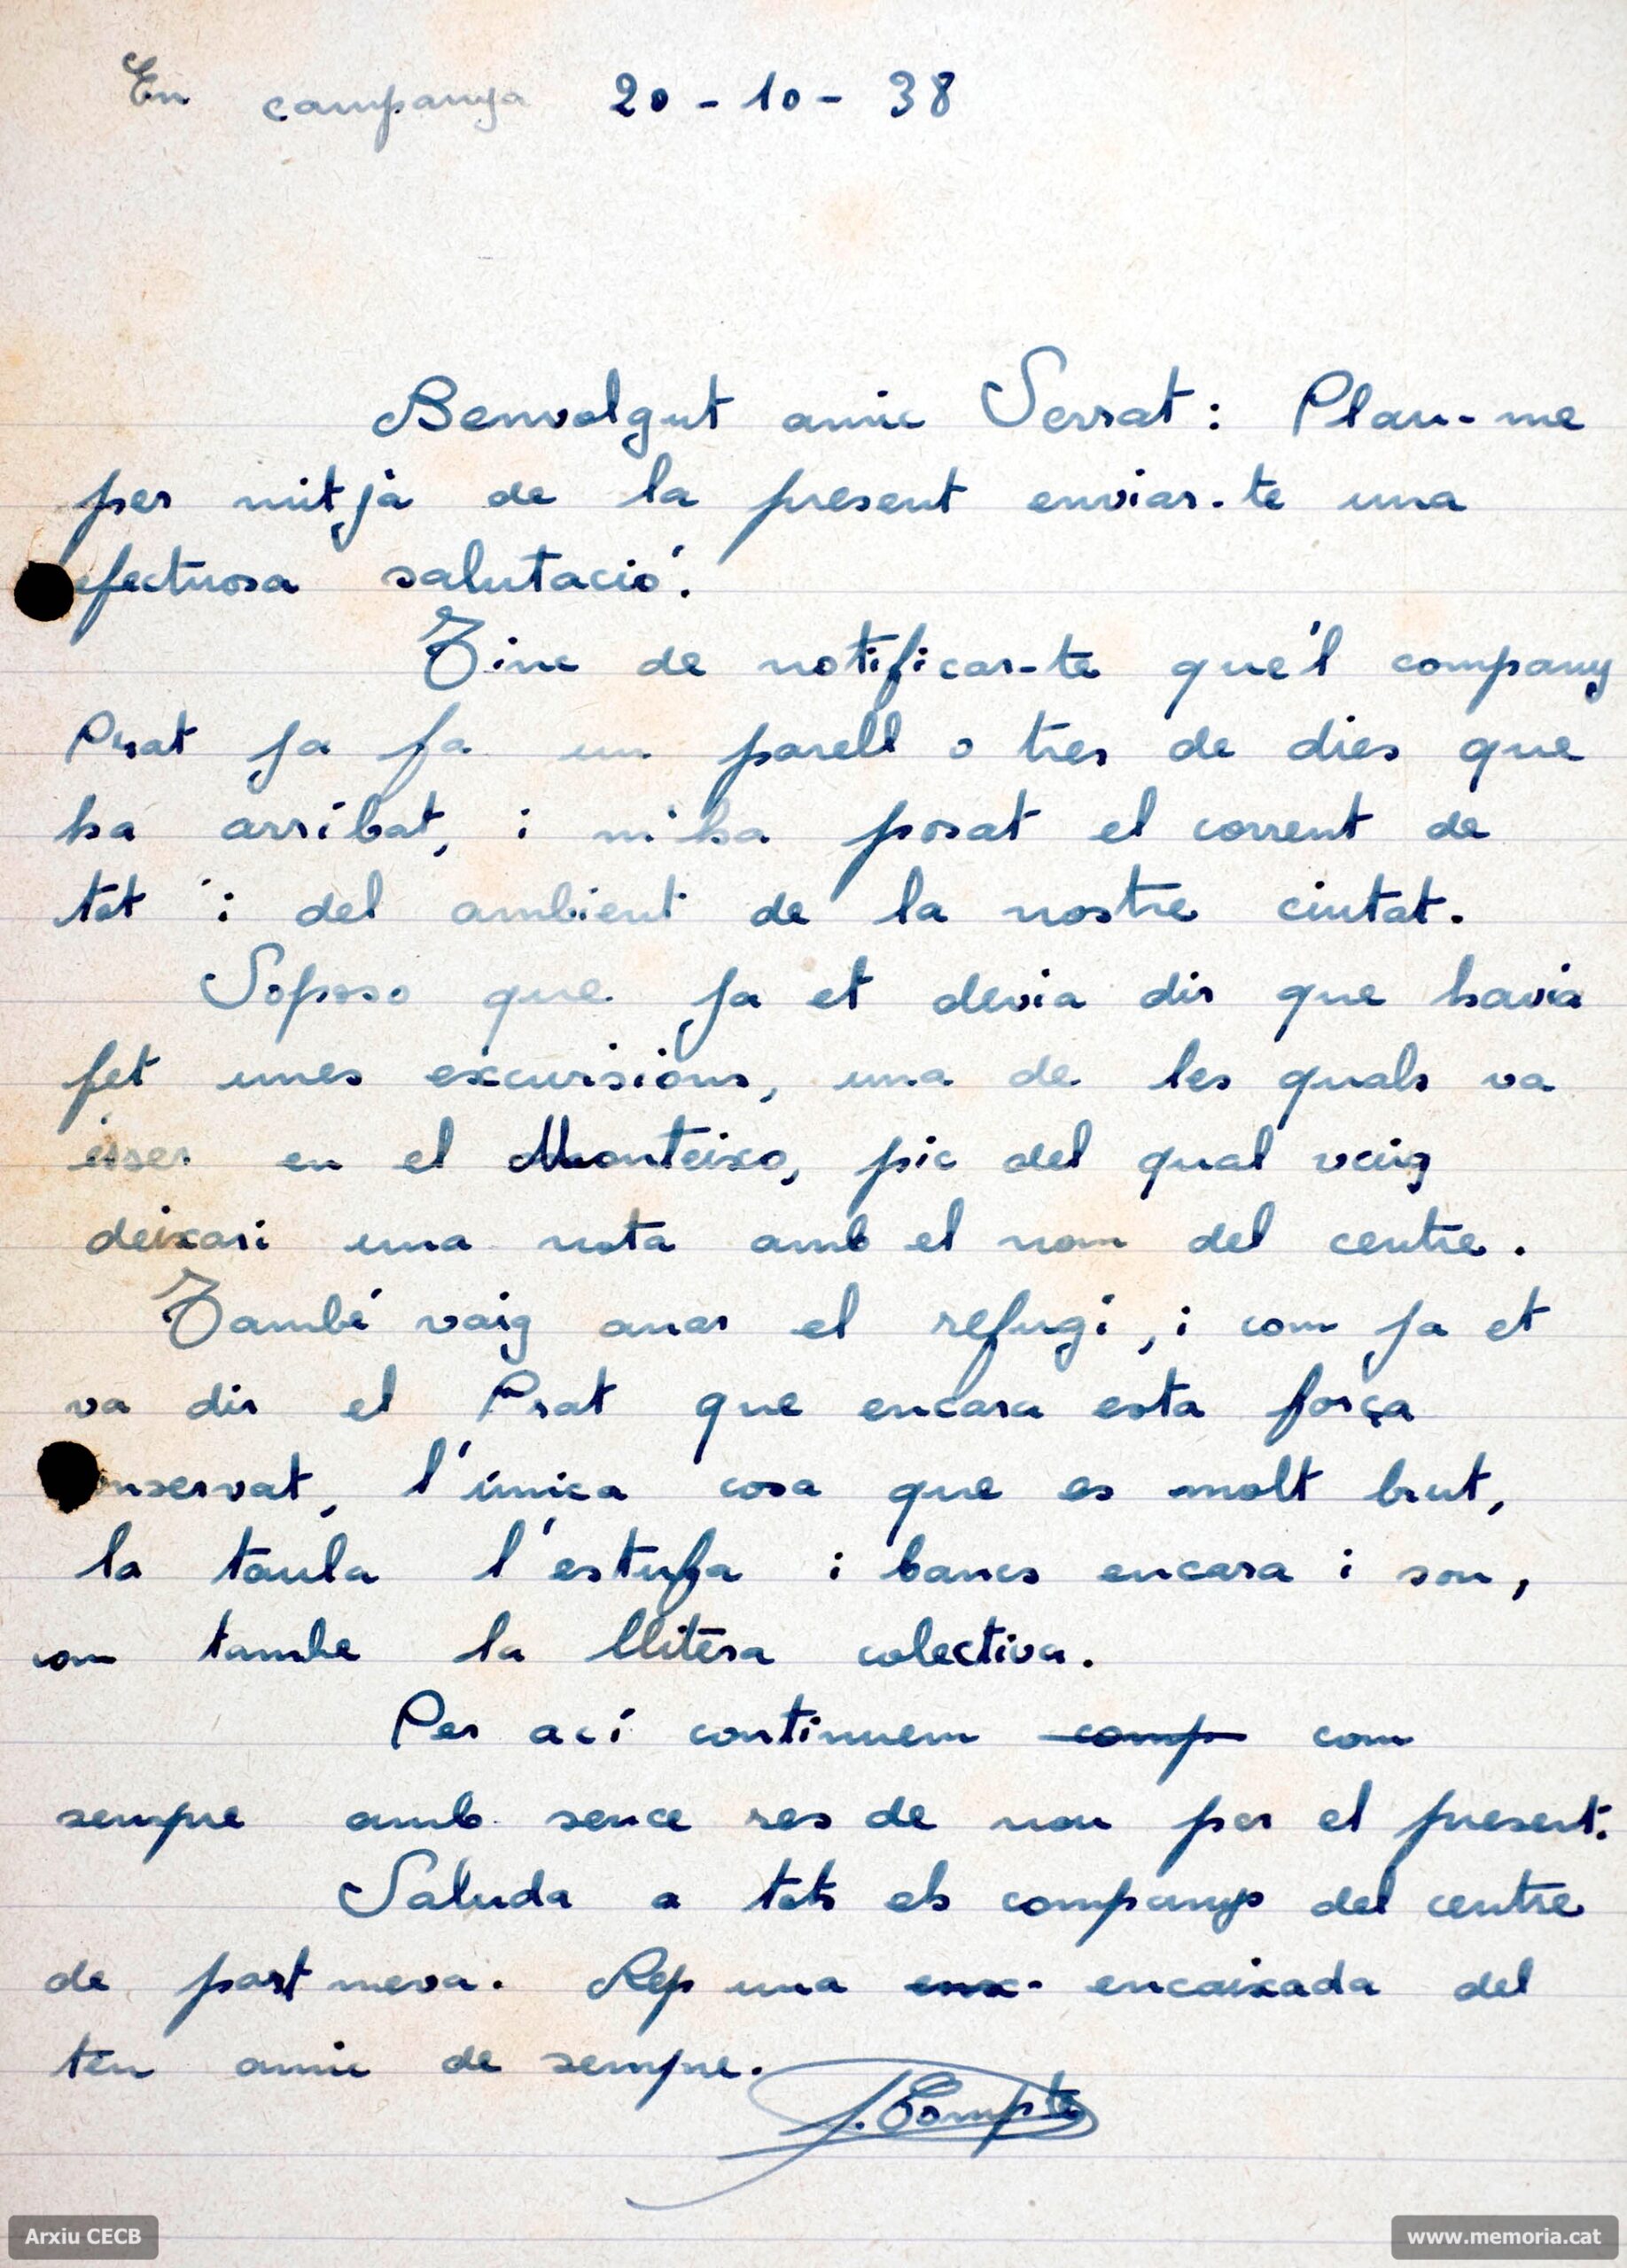 En campanya 20-10-38
Benvolgut amic Serrat: Plau-me
per mitjà de la present enviar-te una
efectuosa salutació.
Tinc de notificar-te que'l company
Prat ja fa un parell o tres de dies que
ha arribat, i m'ha posat el corrent de
tot i del ambient de la nostre ciutat.
Soposo que ja et devia dir que havia
fet unes excursions, una de les quals va
ésser en el Monteixo, pic del qual vaig
deixari una nota amb el nom del centre.
També vaig anar el refugi, i com ja et
va dir el Prat que encara esta força
onservat, l'única cosa que es molt brut,
la taula l'estufa i bancs encara i son,
com tambe la llitera colectiva.
Per ací continuem comp com
sempre amb sence res de nou per el present.
Saluda a tots els companys del centre
de part meva. Rep una enx- encaixada del
teu amic de sempre.
J. Compte
Arxiu CECB
www.memoria.cat